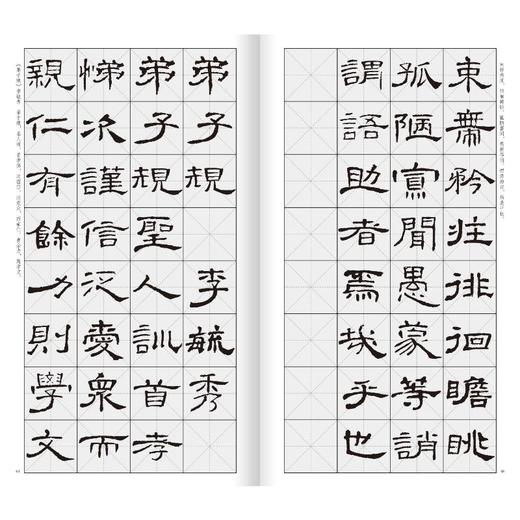 束帶矜莊徘徊瞻眺
孤陋寡聞愚蒙等誚
謂語助者焉哉乎也
弟子規 李毓秀
弟子規聖人訓首孝
悌次謹信汎愛眾而
親仁有餘力則學文